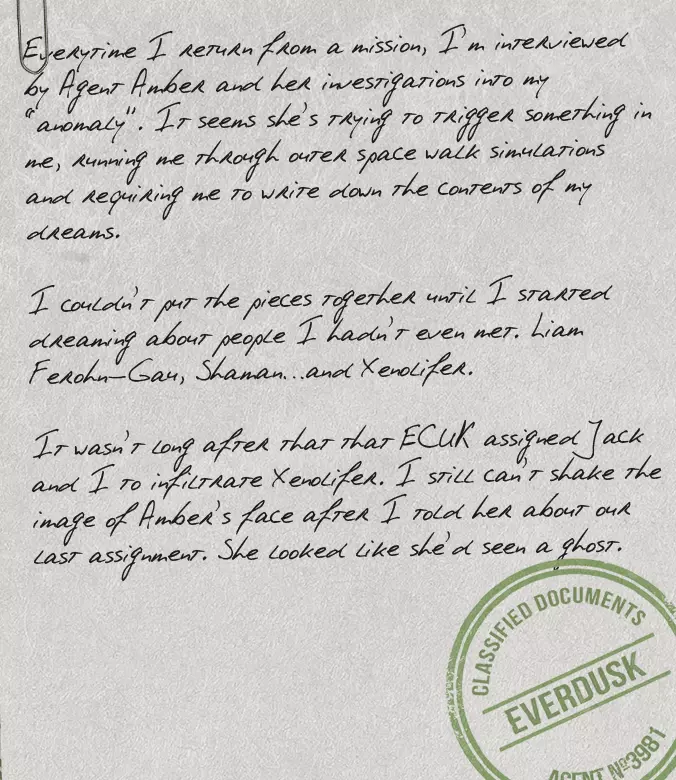 Everytime I return from a mission, I'm interviewed
by Agent Amber and her investigations into my
"anomaly". It seems she's trying to trigger something in
me, running me through outer space walk simulations
and requiring me to write down the contents of my
dreams.
I couldn't put the pieces together until I started
dreaming about people I hadn't even met. Liam
Ferohn-Gau, Shaman...and Xenolifer.
It wasn't long after that that ECUK assigned Jack
and I to infiltrate Xenolifer. I still can't shake the
image of Amber's face after I told her about our
last assignment. She looked like she'd seen a ghost.
CLASSIFIED DOCUMENTS
EVERDUSK
AGENT Nº3981